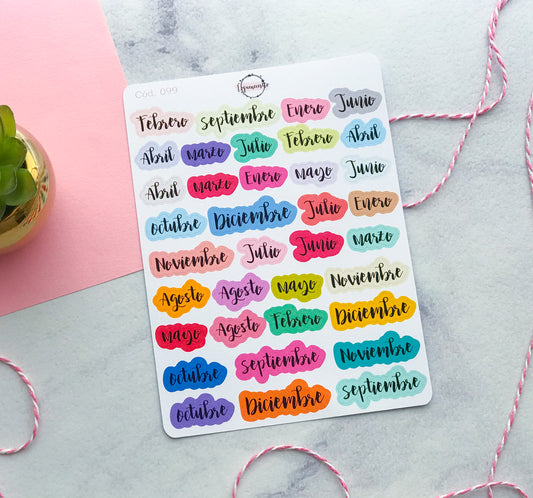 Cód. 099
Febrero septiembre Enero Junio
Abril Marzo Julio Febrero Abril
Abril Marzo Enero Mayo Junio
octubre Diciembre Julio Enero
Noviembre Julio Junio Marzo
Agosto Agosto Mayo Noviembre
Mayo Agosto Febrero Diciembre
octubre septiembre Noviembre
octubre Diciembre septiembre